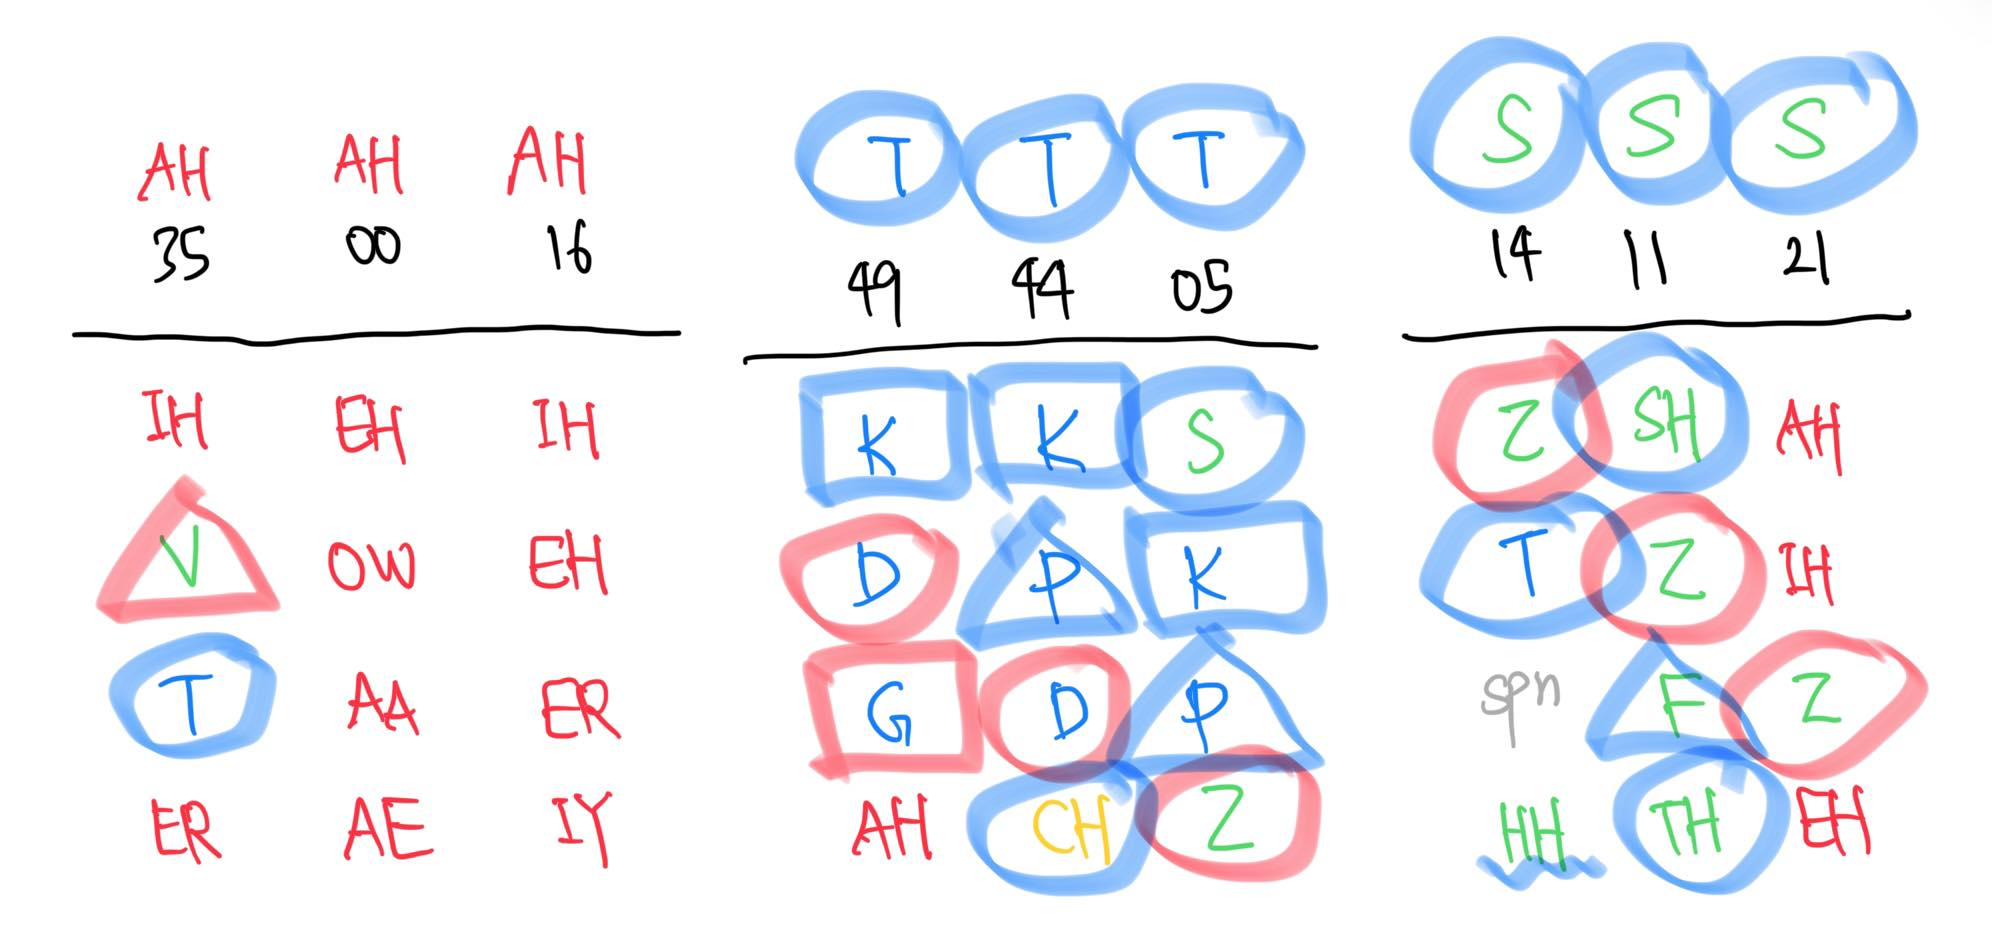 AH AH AH
35 00 16
IH EH IH
V OW EH
T AA ER
ER AE IY
T T T
49 44 05
K K S
D P K
G D P
AH CH Z
S S S
14 11 21
Z SH AH
T Z IH
spn F Z
HH TH EH